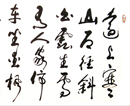 遠上寒
山石徑斜
白雲生處
有人家停
車坐愛楓